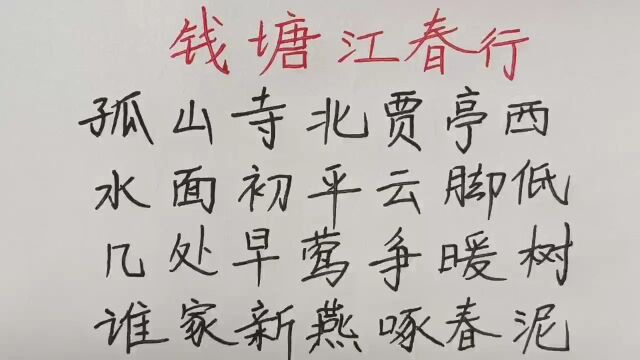 钱塘江春行
孤山寺北贾亭西
水面初平云脚低
几处早莺争暖树
谁家新燕啄春泥